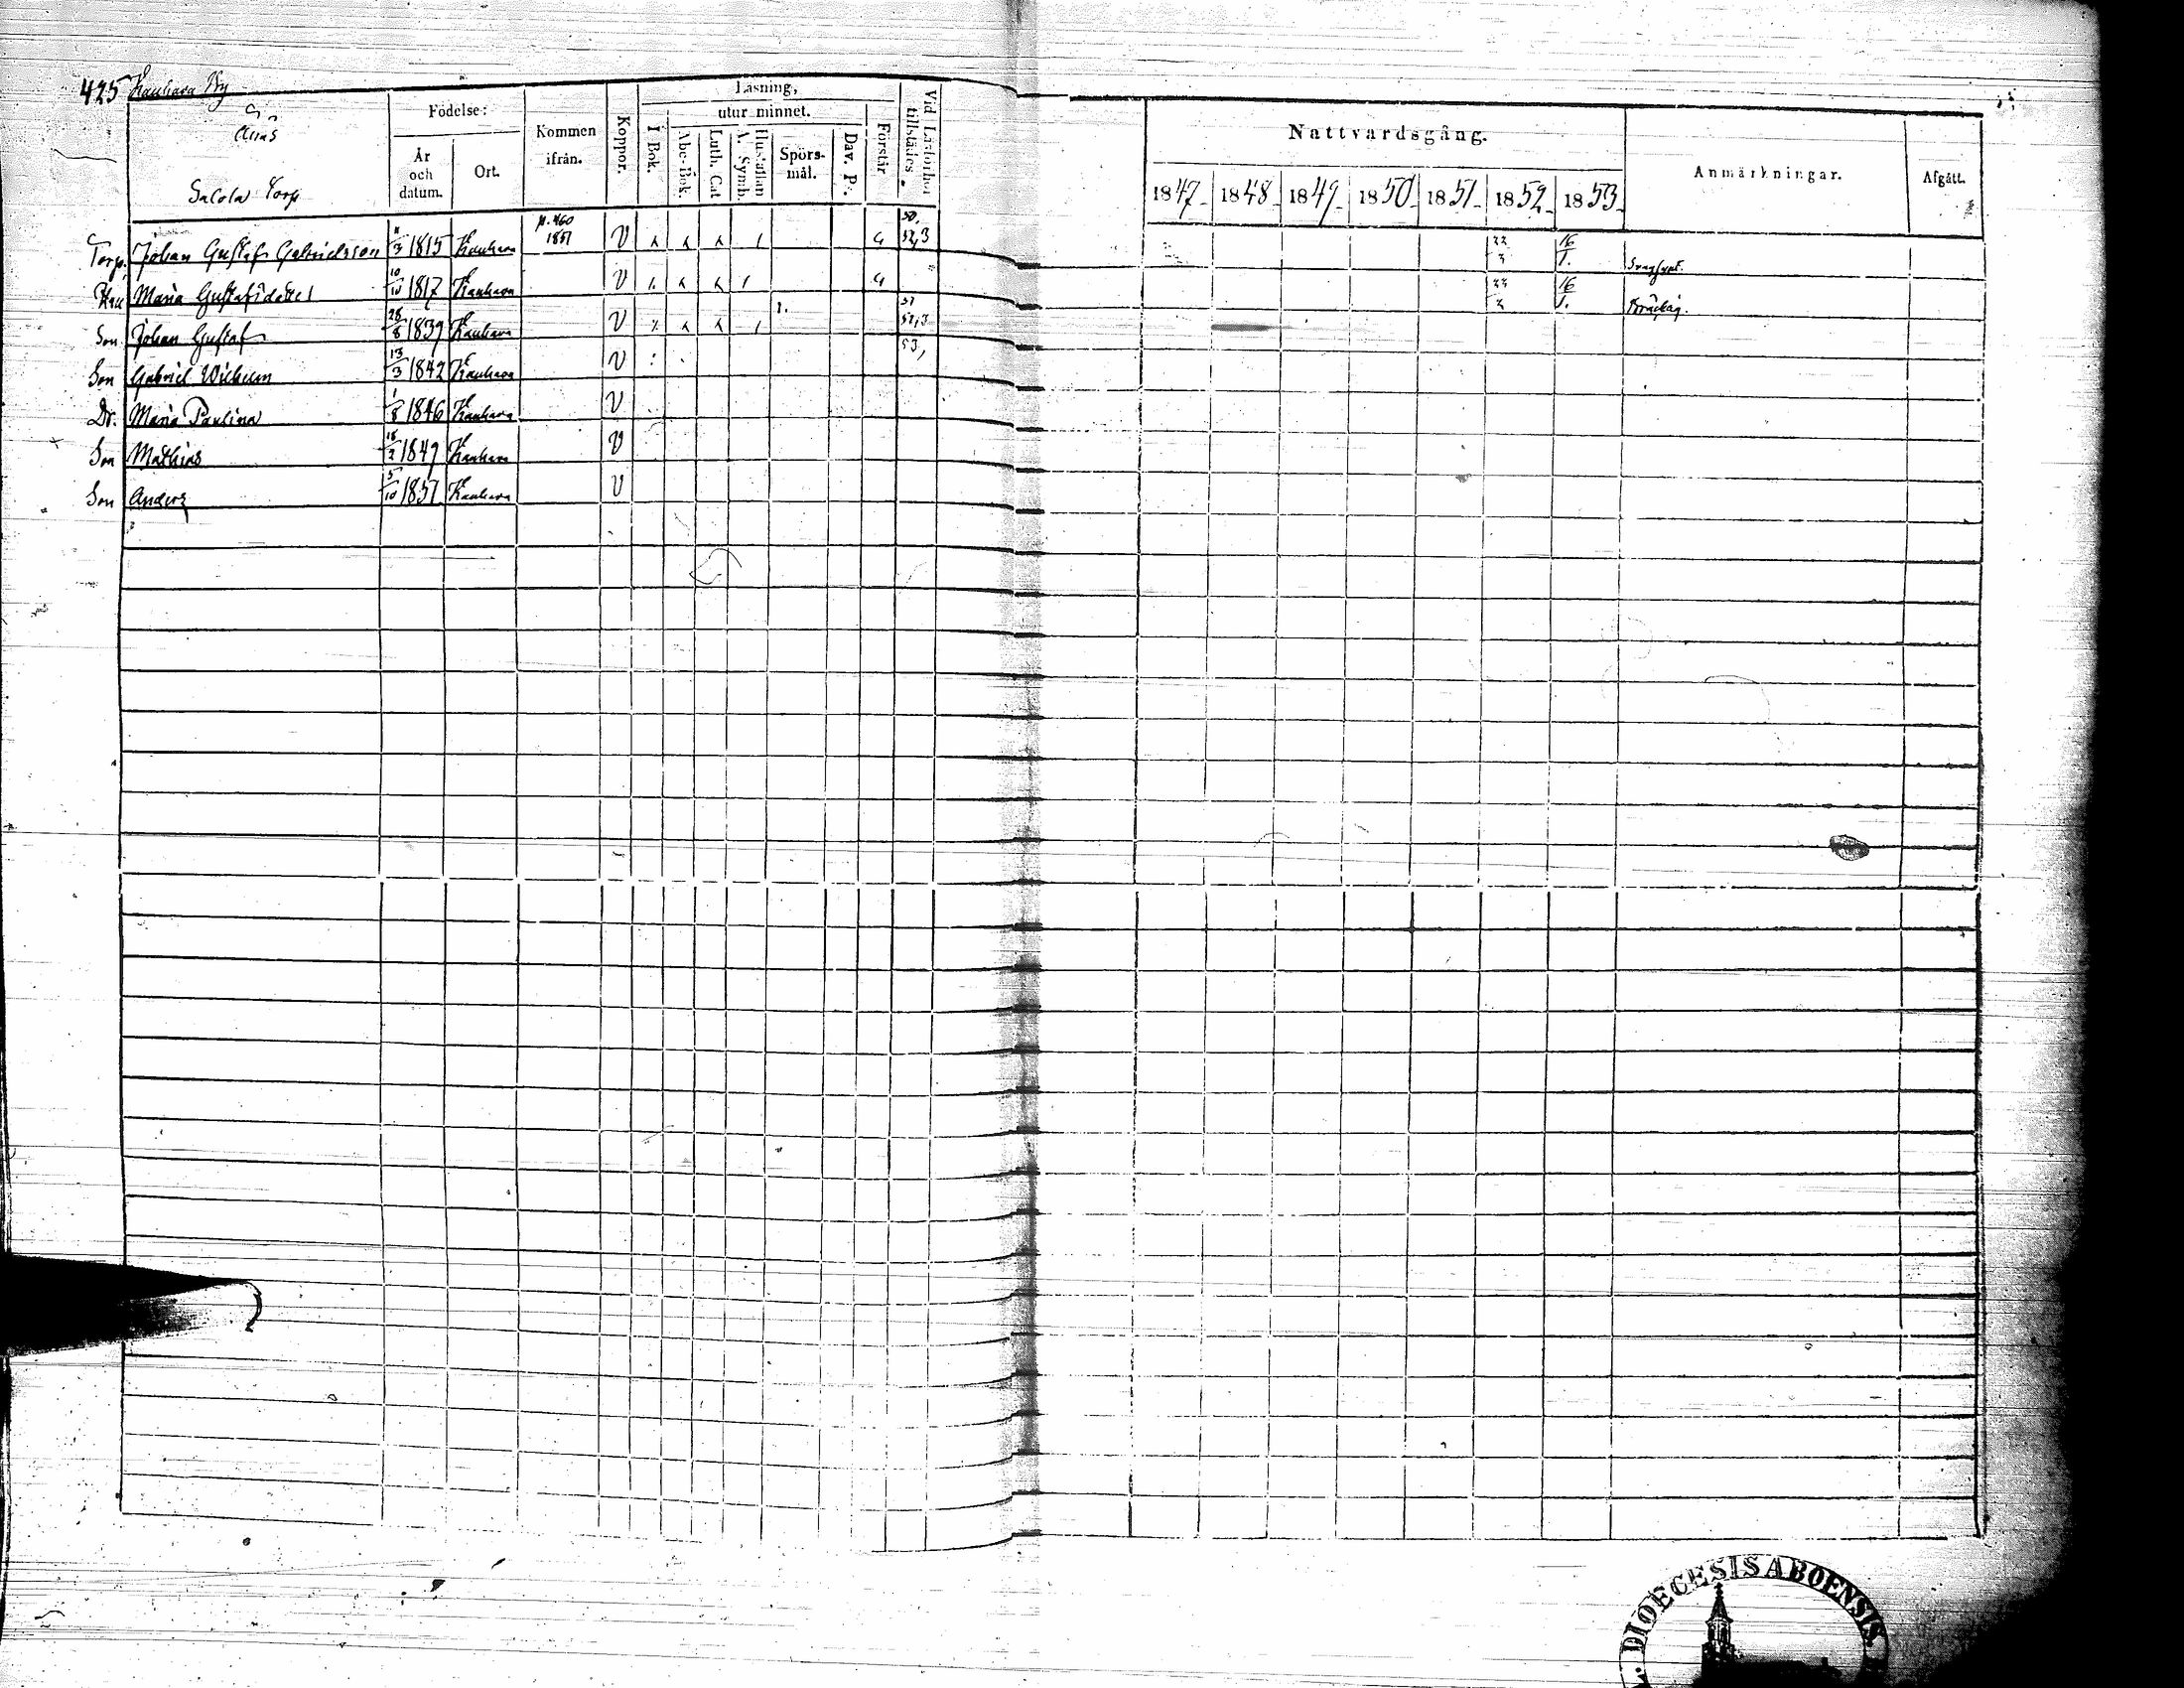 425 Kauhava By
Salola Torp
Födelse:
År och datum.
Ort.
Kommen ifrån.
Koppor.
Läsning,
utur minnet.
I Bok.
Abc-Bok.
Luth. Cat
Hustaflan A. Symb.
Spörsmål.
Dav. Ps.
Förstår
Vid Läsförhör tillstädes.
Nattvardsgång.
1847 1848 1849 1850 1851 1852 1853
Anmärkningar.
Afgått.
Torp. Johan Gustaf Gabrielsson 11/3 1815 Kauhava p. 460 1851 V 16/1.
Hu Maria Gustafsdotter 10/10 1817 Kauhava V 16/1. Bräcklig.
Son Johan Gustaf 28/8 1839 Kauhava V
Son Gabriel Wilhelm 13/3 1842 Kauhava V 53,
Dr. Maria Paulina 1/8 1846 Kauhava V
Son Mathias 18/2 1849 Kauhava V
Son Anders 5/10 1851 Kauhava V
DIOECESIS ABOENSIS